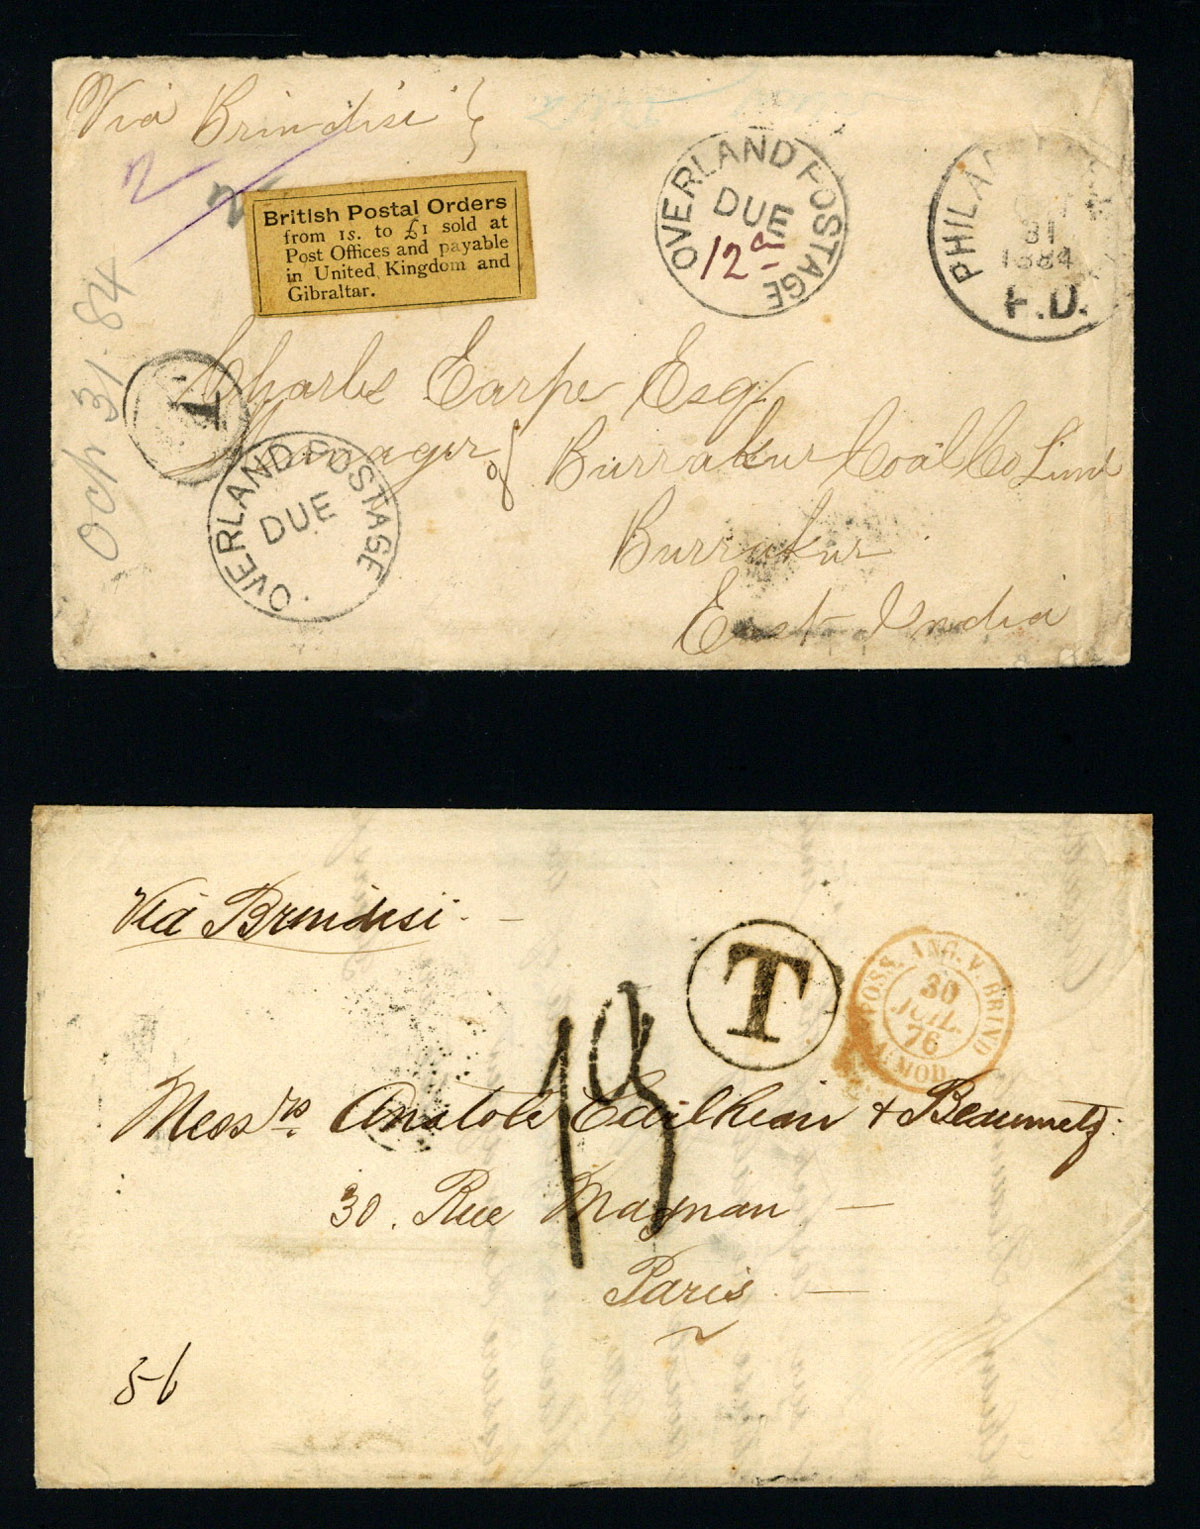 Via Brindisi
2
2
British Postal Orders
from 1s. to £1 sold at
Post Offices and payable
in United Kingdom and
Gibraltar.
OVERLAND POSTAGE
DUE
12a
PHILA
31
1884
P.D.
Oct 31. 84
T
Charles Earpe Esqr
Manager of Burrakur Coal Co Limd
OVERLAND POSTAGE
DUE
Burrakur
East India
Via Brindisi. —
T
POSS. ANG. V. BRIND
30
JUIL.
76
A. MOD
Messrs. Anatole & Beaumetz.
30. Rue Magnan —
Paris. —
56